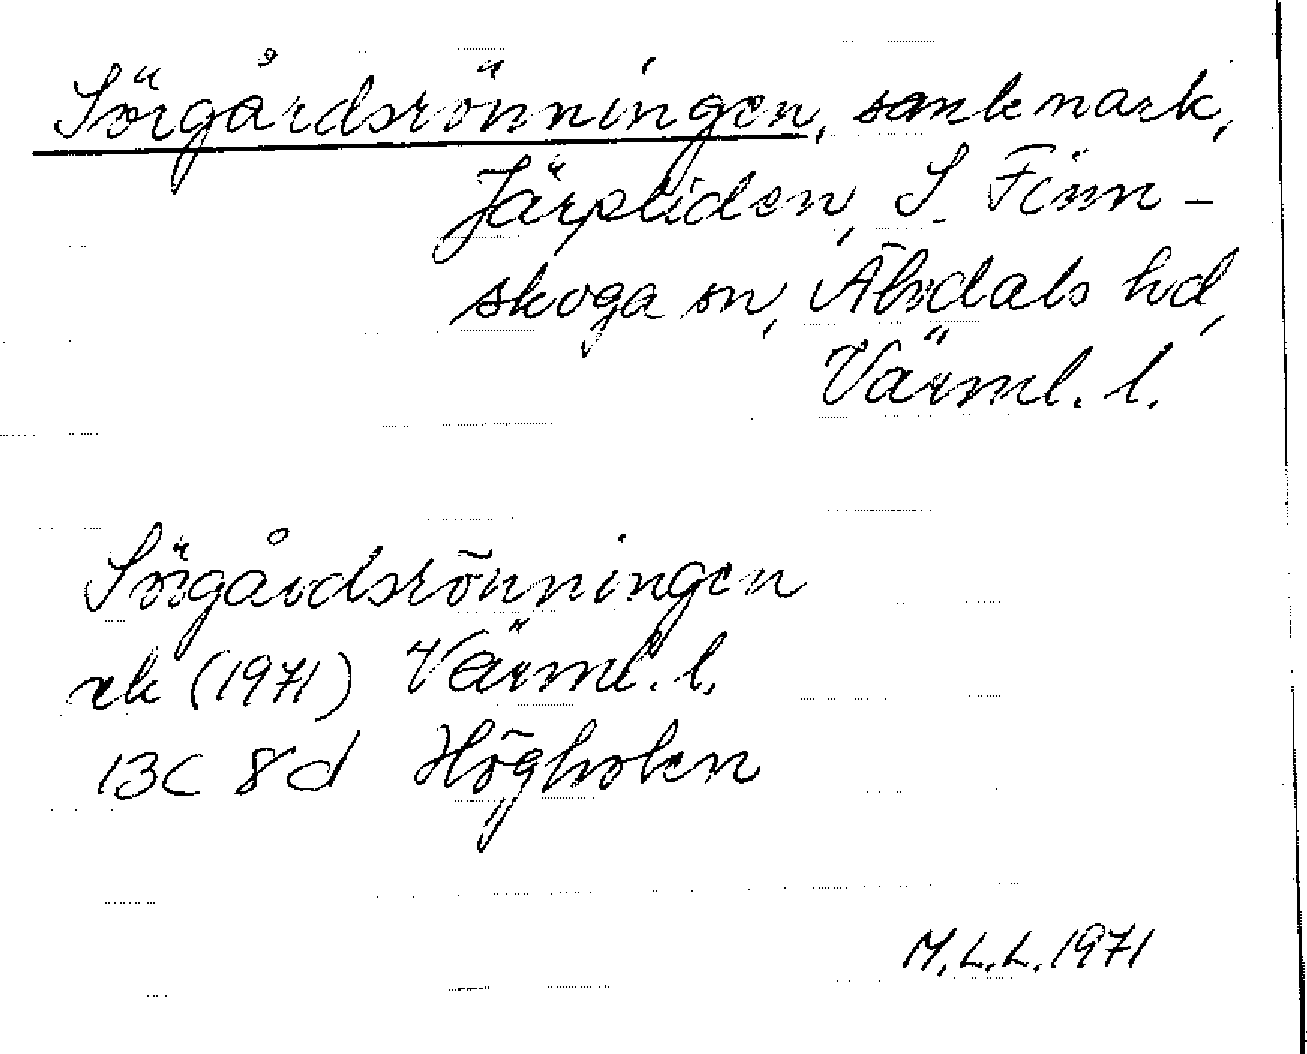 Sörgårdsrönningen, sankmark,
Järpliden, S. Finn-
skoga sn, Älvdals hd,
Värml. l.
Sörgårdsrönningen
ek (1971) Värml. l.
13C 8d Högholen
M.L.L. 1971